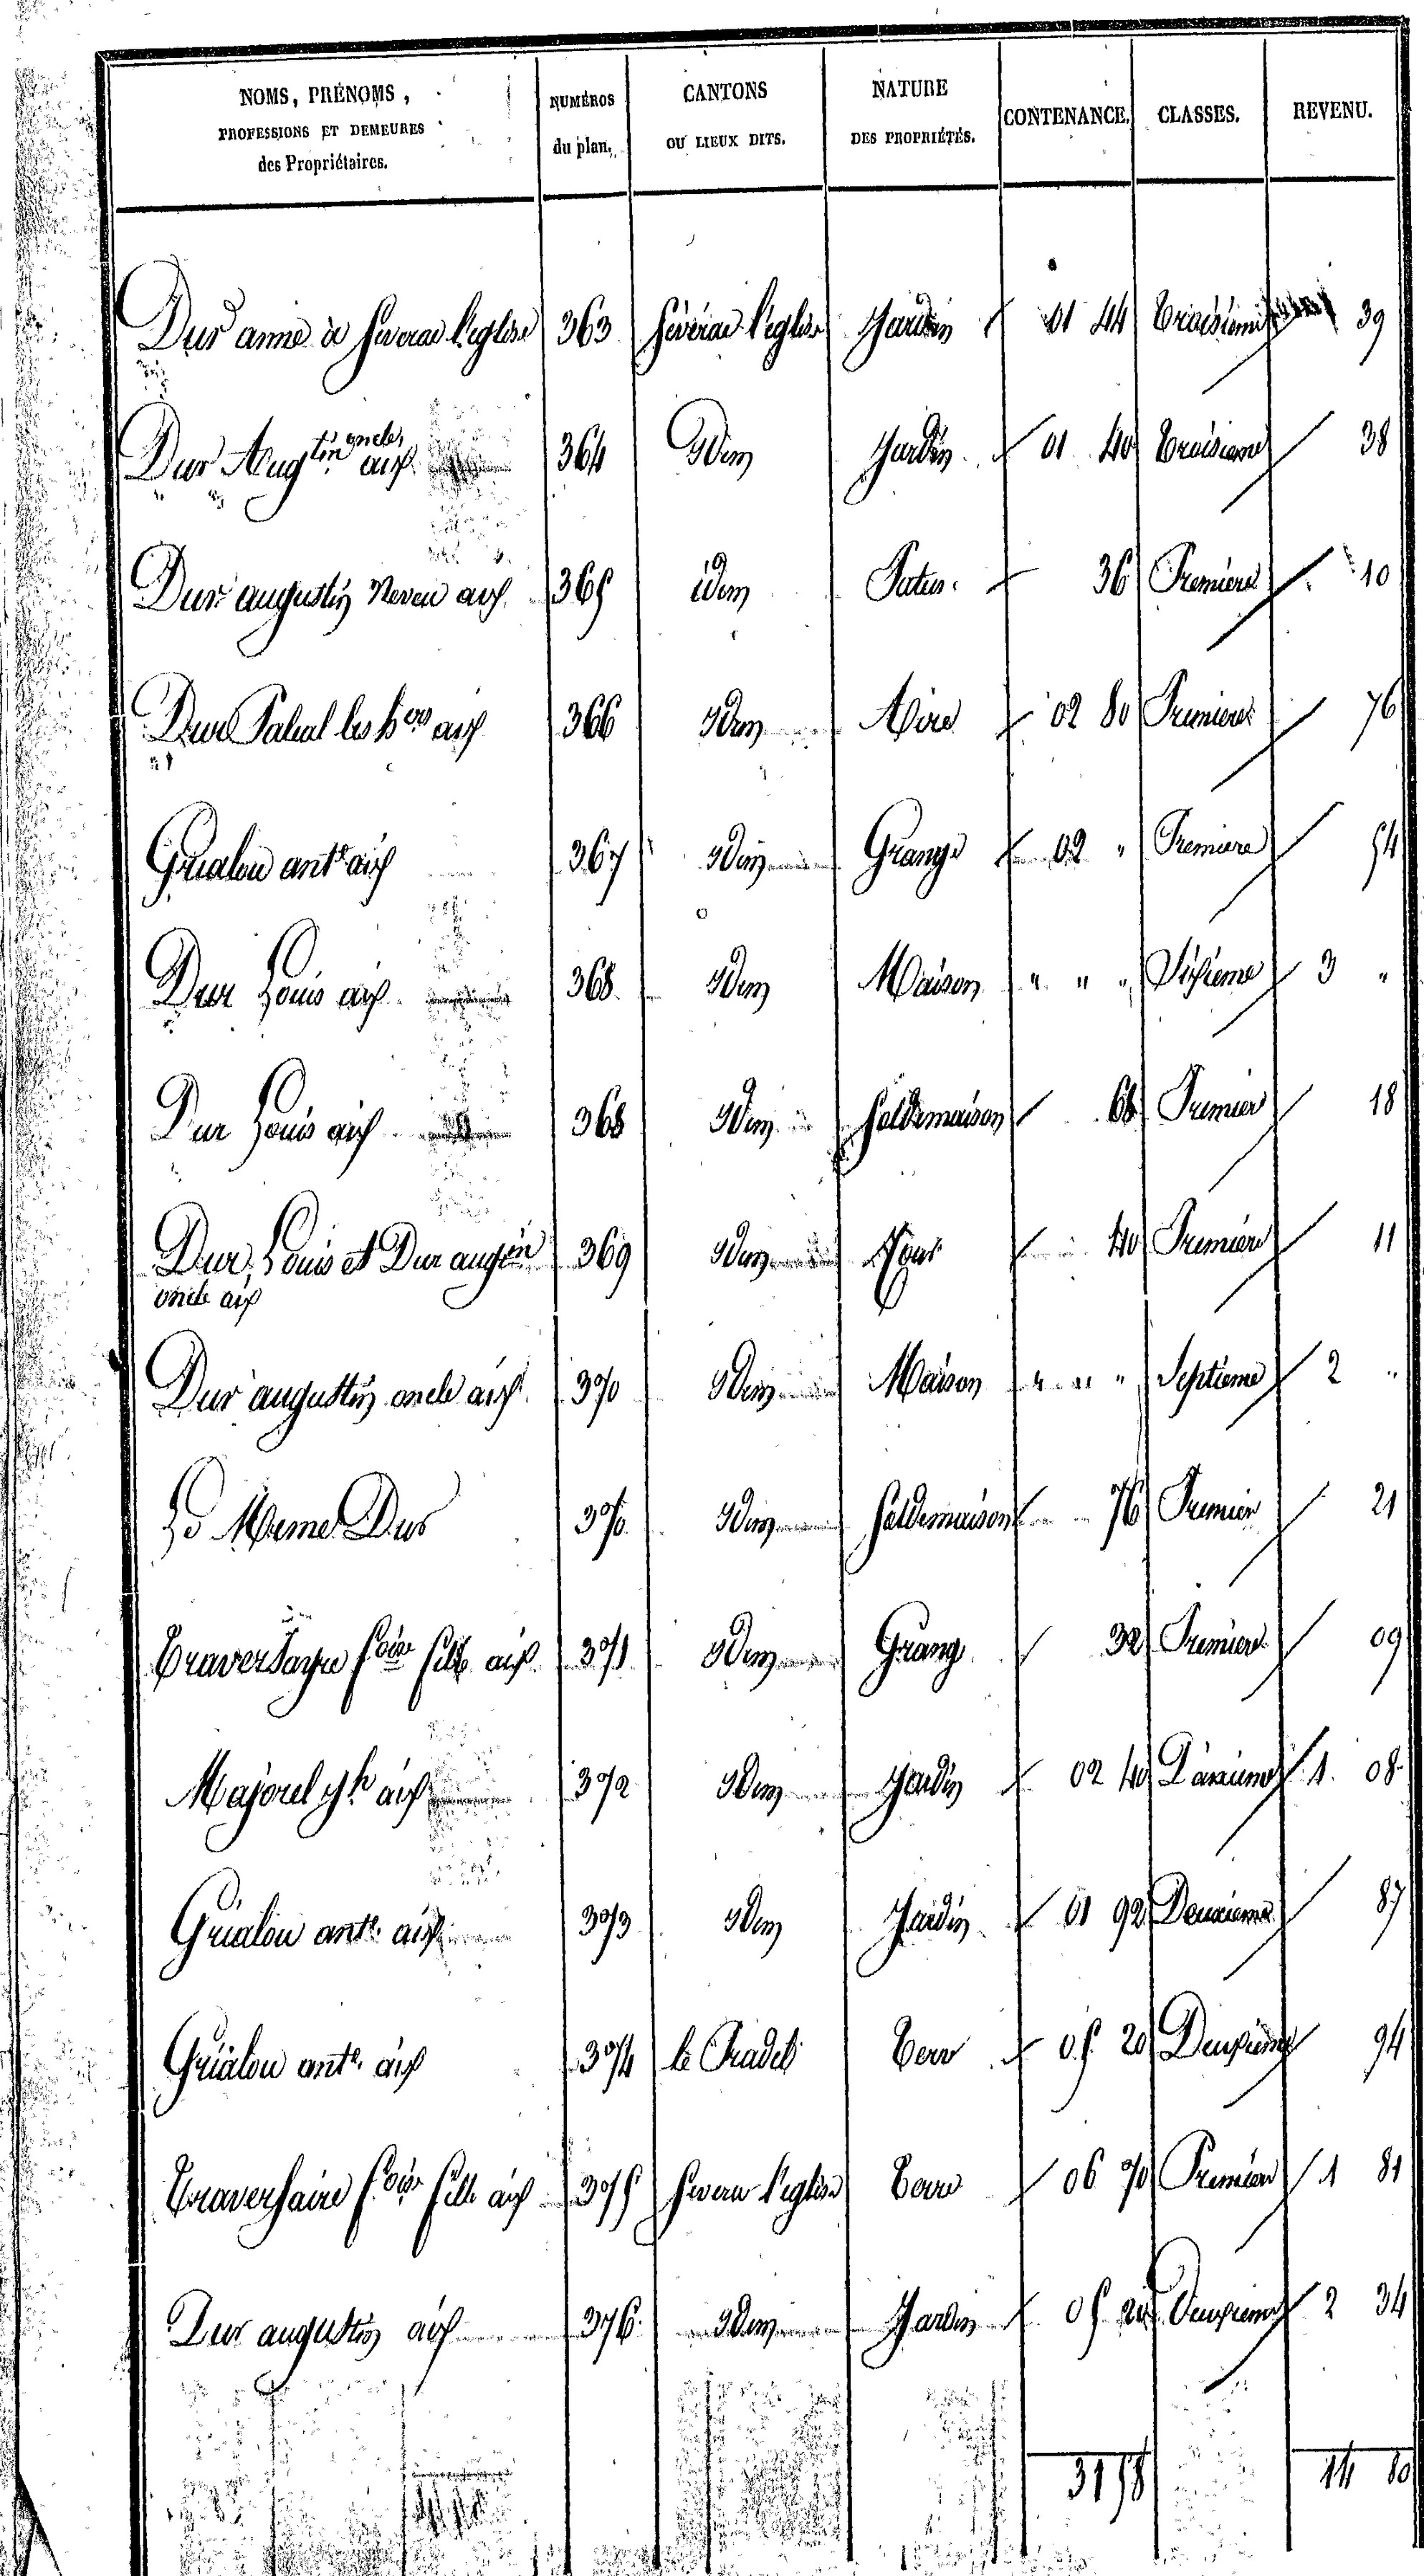 NOMS, PRÉNOMS, PROFESSIONS ET DEMEURES des Propriétaires. NUMÉROS du plan. CANTONS OU LIEUX DITS. NATURE DES PROPRIÉTÉS. CONTENANCE. CLASSES. REVENU.
Dur anne à Severac l'eglise 363 Séverac l'eglise Jardin 01 44 Troisieme 39
Dur Augtin oncle aux 364 Idem Jardin 01 40 Troisieme 38
Dur augustin Neveu aux 365 idem Patus 36 Premiere 10
Dur les hers aux 366 Idem Aire 02 80 Premiere 76
Grialou ante aux 367 Idem Grange 02 " Premiere 54
Dur Louis aux 368 Idem Maison " " " Sixieme 3 "
Dur Louis aux 368 Idem Soldemaison 68 Premier 18
Dur Louis et Dur augtin 369 Idem 40 Premiere 11
oncle aux
Dur augustin oncle aux 370 Idem Maison " " " Septieme 2 "
Le Meme Dur 370 Idem Soldemaison 76 Premier 21
Traversayre fille aux 371 Idem Grang 32 Premiere 09
Majorel jh aux 372 Idem Jardin 02 40 Deuxieme 1 08
Grialou ante aux 373 Idem Jardin 01 92 Deuxieme 87
Grialou ante aux 374 le Pradel Terre 05 20 Deuxieme 94
Traversaire fille aux 375 Severac l'eglise Terre 06 70 Premiere 1 81
Dur augustin aux 376 Idem Jardin 05 20 Deuxieme 2 34
31 58 14 80